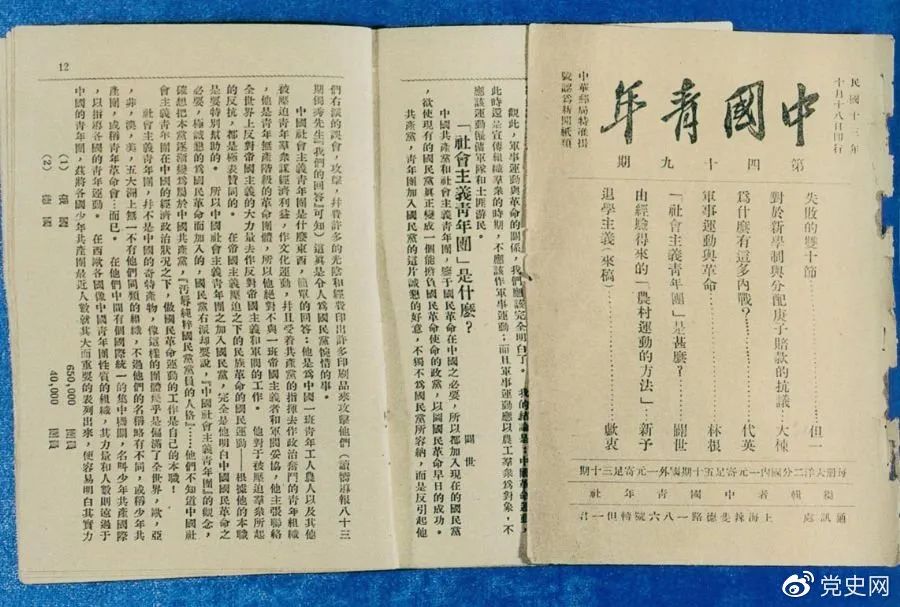 民國十三年
十月十八日印行
中國青年
第四十九期
中華郵局特准掛
號認爲新聞紙類
失敗的雙十節……但一
對於新學制與分配庚子賠款的抗議……大棟
爲什麼有這多內戰？……代英
軍事運動與革命……林根
「社會主義青年團」是甚麼？……闢世
由經驗得來的「農村運動的方法」……新予
退學主義（來稿）……獻衷
每册大洋二分國内一元寄足五十期國外一元寄足三十期
編輯者中國青年社
通訊處 上海辣斐德路一八六號轉但一君
觀此，軍事運動與革命的關係，我們應該完全明白了。我的結論是：中國革命運動，
此時還是宣傳組織羣衆的時期，不應該作軍事運動；而且軍事運動應以農工羣衆爲對象，不
應該運動僱傭軍隊和土匪游民。
「社會主義青年團」是什麼？
闢世
中國共產黨和社會主義青年團，鑒于國民革命在中國之必要，所以都加入現在的國民黨
，欲使現有的國民黨眞正變成一個能擔負國民革命使命的政黨，以圖國民革命早日的成功。
共產黨，青年團加入國民黨的這片誠懇的好意，不獨不爲國民黨所容納，而是反引起他
12
們右派的誤會，攻擊，幷費許多的光陰和經費印出許多印刷品來攻擊他們（請讀嚮導報八十三
期獨秀先生『我們的回答』可知）這眞是令人爲國民黨惋惜的事。
中國社會主義青年團是什麼東西，簡單的回答：他是爲中國一班青年工人農人以及其他
被壓迫青年羣衆謀經濟利益，作文化運動，幷且受着共產黨的指揮去作政治奮鬥的青年組織
，他是青年無產階級的革命團體，所以他絕對不與一班帝國主義者和軍閥妥協，他主張聯絡
全世界上反對帝國主義的大力量去作反對帝國主義和軍閥的工作。他對于被壓迫羣衆所起
的反抗，都是極表贊同的。在帝國主義壓迫之下的民族革命的國民運動——根據他的本職
是要特別幫助的。所以中國社會主義青年團之加入國民黨，完全是他明白中國國民革命之
必要，極誠懇的爲國民革命而加入的，國民黨右派却要說，『中國社會主義青年團』的觀念，
確想把本黨逐漸變爲屬於中國共產黨，『汚辱純粹國民黨黨員的人格』……他們不知道中國社
會主義青年團在中國的經濟政治狀況之下，做國民革命運動的工作是自己的本職！
社會主義青年團，幷不是中國的奇特產物，像這樣的團體幾乎是偏滿了全世界，歐，亞
，非，澳，美，五大洲上無一不有他們同類的組織，不過他們的名稱略有不同，或稱少年共
產團，或稱青年革命會…而已。在他們中間有個國際統一的集中機關，名呌少年共產國際
，以指導各國的青年運動。在西歐各國像中國青年團性質的組織，其力量和人數則遠過于
中國的青年團，茲將各國少年共產團最近人數就其大而重要的表列出來，使容易明白其實力
(1)
650,000
(2)
40,000
党史网